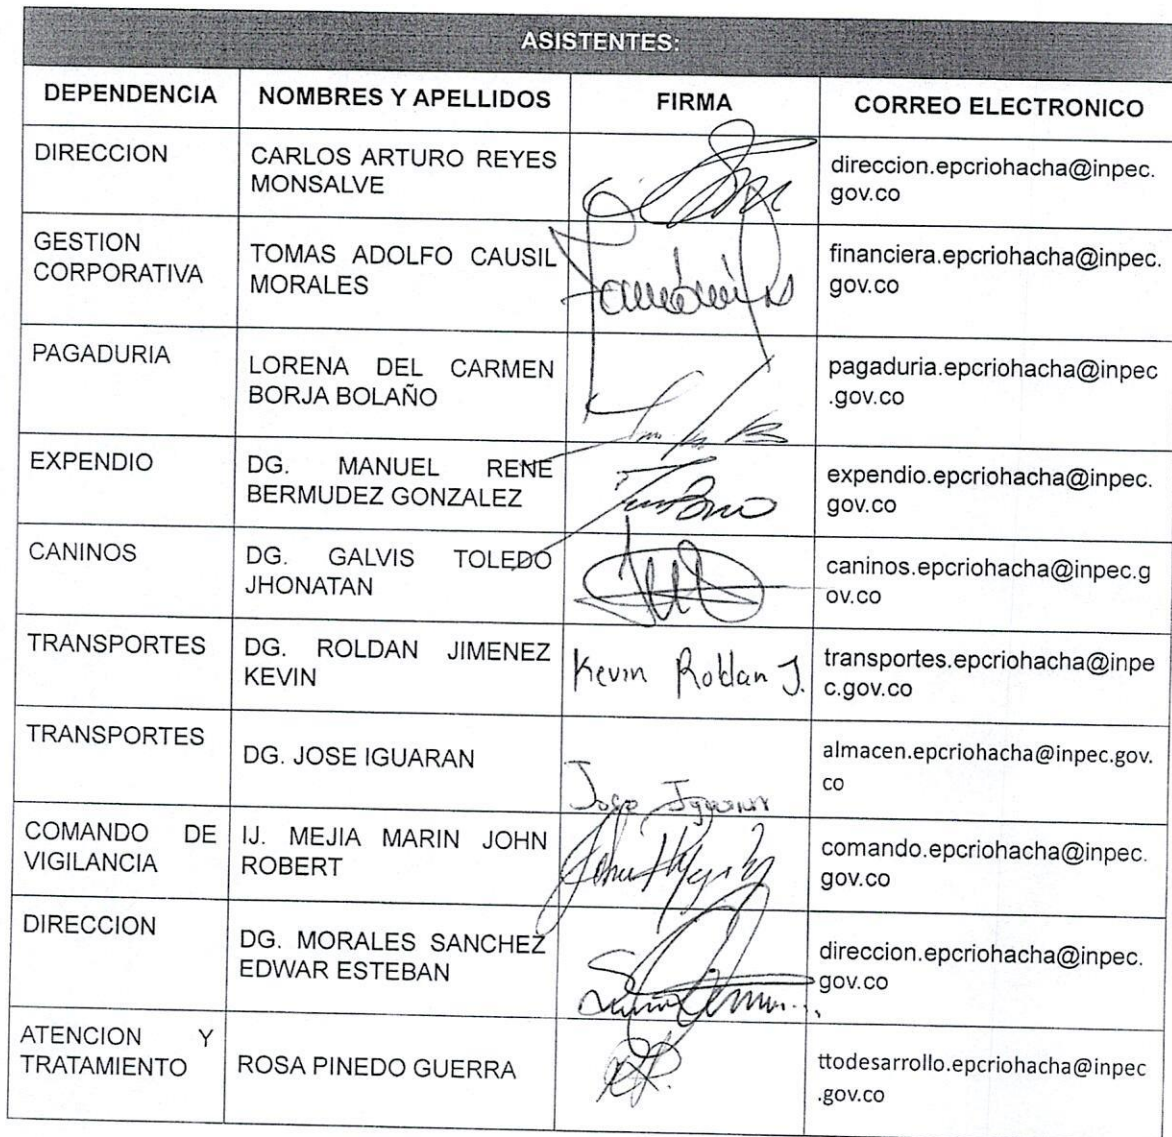 ASISTENTES:
DEPENDENCIA NOMBRES Y APELLIDOS FIRMA CORREO ELECTRONICO
DIRECCION CARLOS ARTURO REYES MONSALVE direccion.epcriohacha@inpec.
gov.co
GESTION CORPORATIVA TOMAS ADOLFO CAUSIL MORALES financiera.epcriohacha@inpec.
gov.co
PAGADURIA LORENA DEL CARMEN BORJA BOLAÑO pagaduria.epcriohacha@inpec
.gov.co
EXPENDIO DG. MANUEL RENE BERMUDEZ GONZALEZ expendio.epcriohacha@inpec.
gov.co
CANINOS DG. GALVIS TOLEDO JHONATAN caninos.epcriohacha@inpec.g
ov.co
TRANSPORTES DG. ROLDAN JIMENEZ KEVIN Kevin Roldan J. transportes.epcriohacha@inpe
c.gov.co
TRANSPORTES DG. JOSE IGUARAN Jose Iguaran almacen.epcriohacha@inpec.gov.
co
COMANDO DE VIGILANCIA IJ. MEJIA MARIN JOHN ROBERT comando.epcriohacha@inpec.
gov.co
DIRECCION DG. MORALES SANCHEZ EDWAR ESTEBAN direccion.epcriohacha@inpec.
gov.co
ATENCION Y TRATAMIENTO ROSA PINEDO GUERRA ttodesarrollo.epcriohacha@inpec
.gov.co